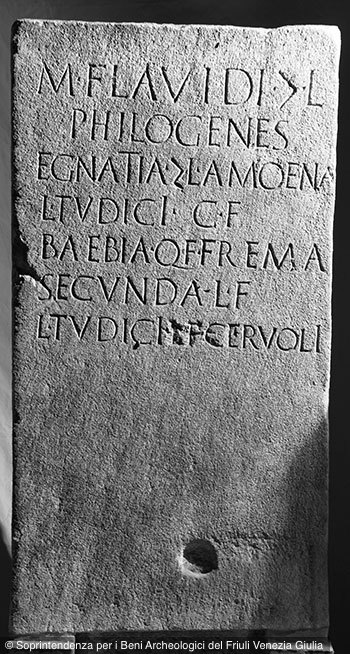 M·FLAVIDI·Ↄ·L
PHILOGENES
EGNATIA·Ↄ·L·AMOENA
L·TVDICI·C·F
BAEBIA·Q·F·FREMA
SECVNDA·L·F
L·TVDICI·L·F·CERVOLI
© Soprintendenza per i Beni Archeologici del Friuli Venezia Giulia